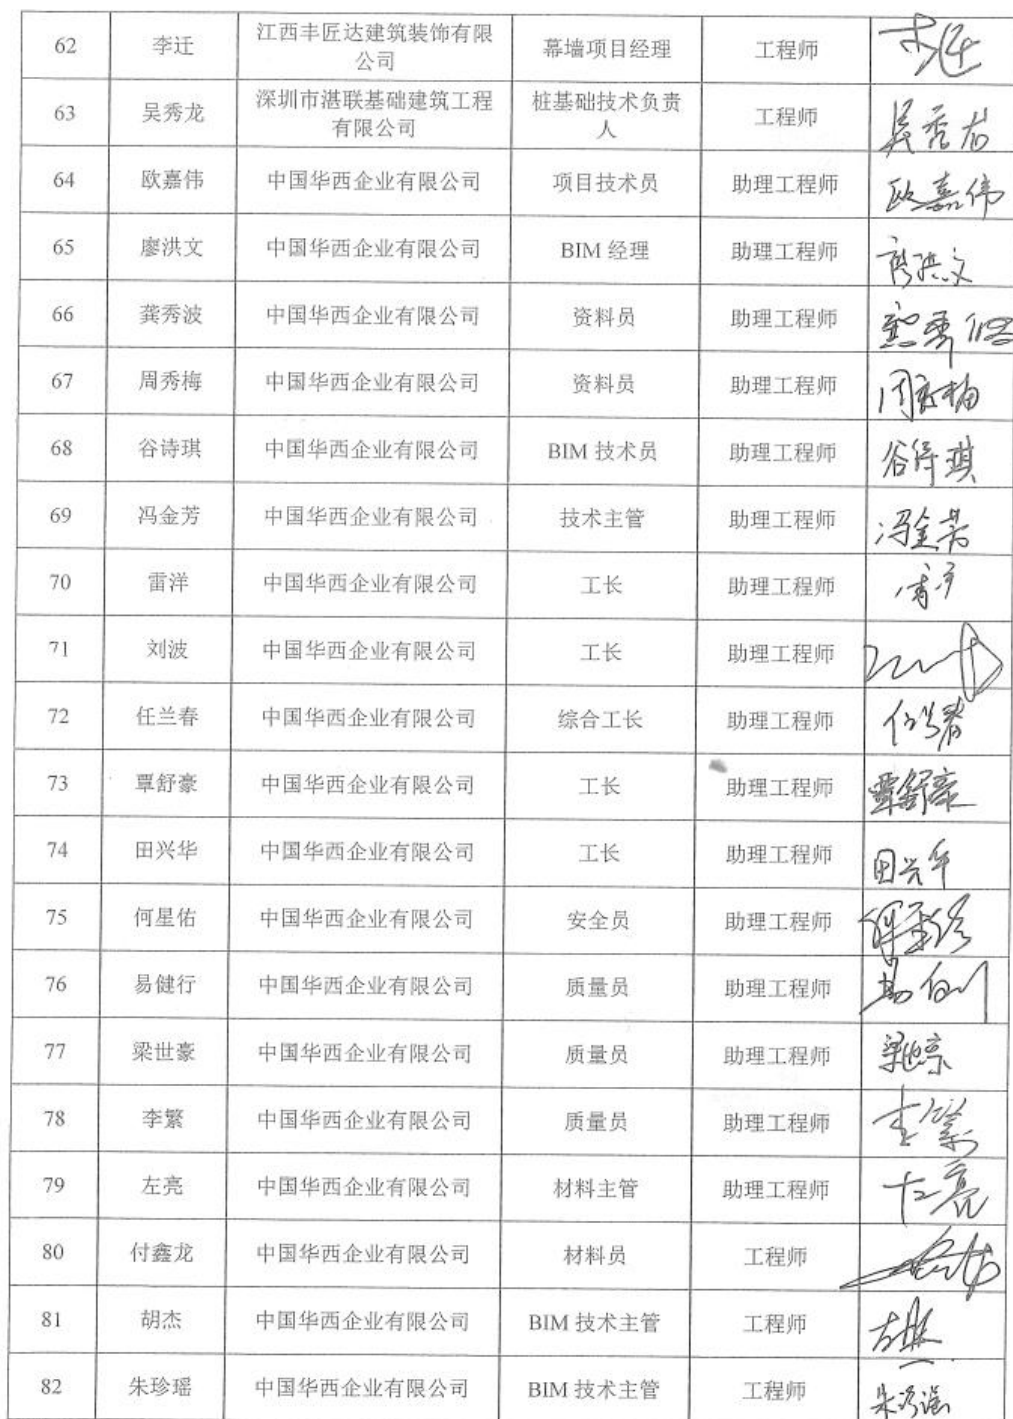 62 李迁 江西丰匠达建筑装饰有限 幕墙项目经理 工程师
公司
63 吴秀龙 深圳市湛联基础建筑工程 桩基础技术负责 工程师 吴秀龙
有限公司 人
64 欧嘉伟 中国华西企业有限公司 项目技术员 助理工程师 欧嘉伟
65 廖洪文 中国华西企业有限公司 BIM 经理 助理工程师 廖洪文
66 龚秀波 中国华西企业有限公司 资料员 助理工程师 龚秀波
67 周秀梅 中国华西企业有限公司 资料员 助理工程师 周秀梅
68 谷诗琪 中国华西企业有限公司 BIM 技术员 助理工程师 谷诗琪
69 冯金芳 中国华西企业有限公司 技术主管 助理工程师 冯金芳
70 雷洋 中国华西企业有限公司 工长 助理工程师
71 刘波 中国华西企业有限公司 工长 助理工程师
72 任兰春 中国华西企业有限公司 综合工长 助理工程师 任兰春
73 覃舒豪 中国华西企业有限公司 工长 助理工程师 覃舒豪
74 田兴华 中国华西企业有限公司 工长 助理工程师 田兴华
75 何星佑 中国华西企业有限公司 安全员 助理工程师
76 易健行 中国华西企业有限公司 质量员 助理工程师
77 梁世豪 中国华西企业有限公司 质量员 助理工程师 梁世豪
78 李繁 中国华西企业有限公司 质量员 助理工程师 李繁
79 左亮 中国华西企业有限公司 材料主管 助理工程师 左亮
80 付鑫龙 中国华西企业有限公司 材料员 工程师
81 胡杰 中国华西企业有限公司 BIM 技术主管 工程师
82 朱珍瑶 中国华西企业有限公司 BIM 技术主管 工程师 朱珍瑶